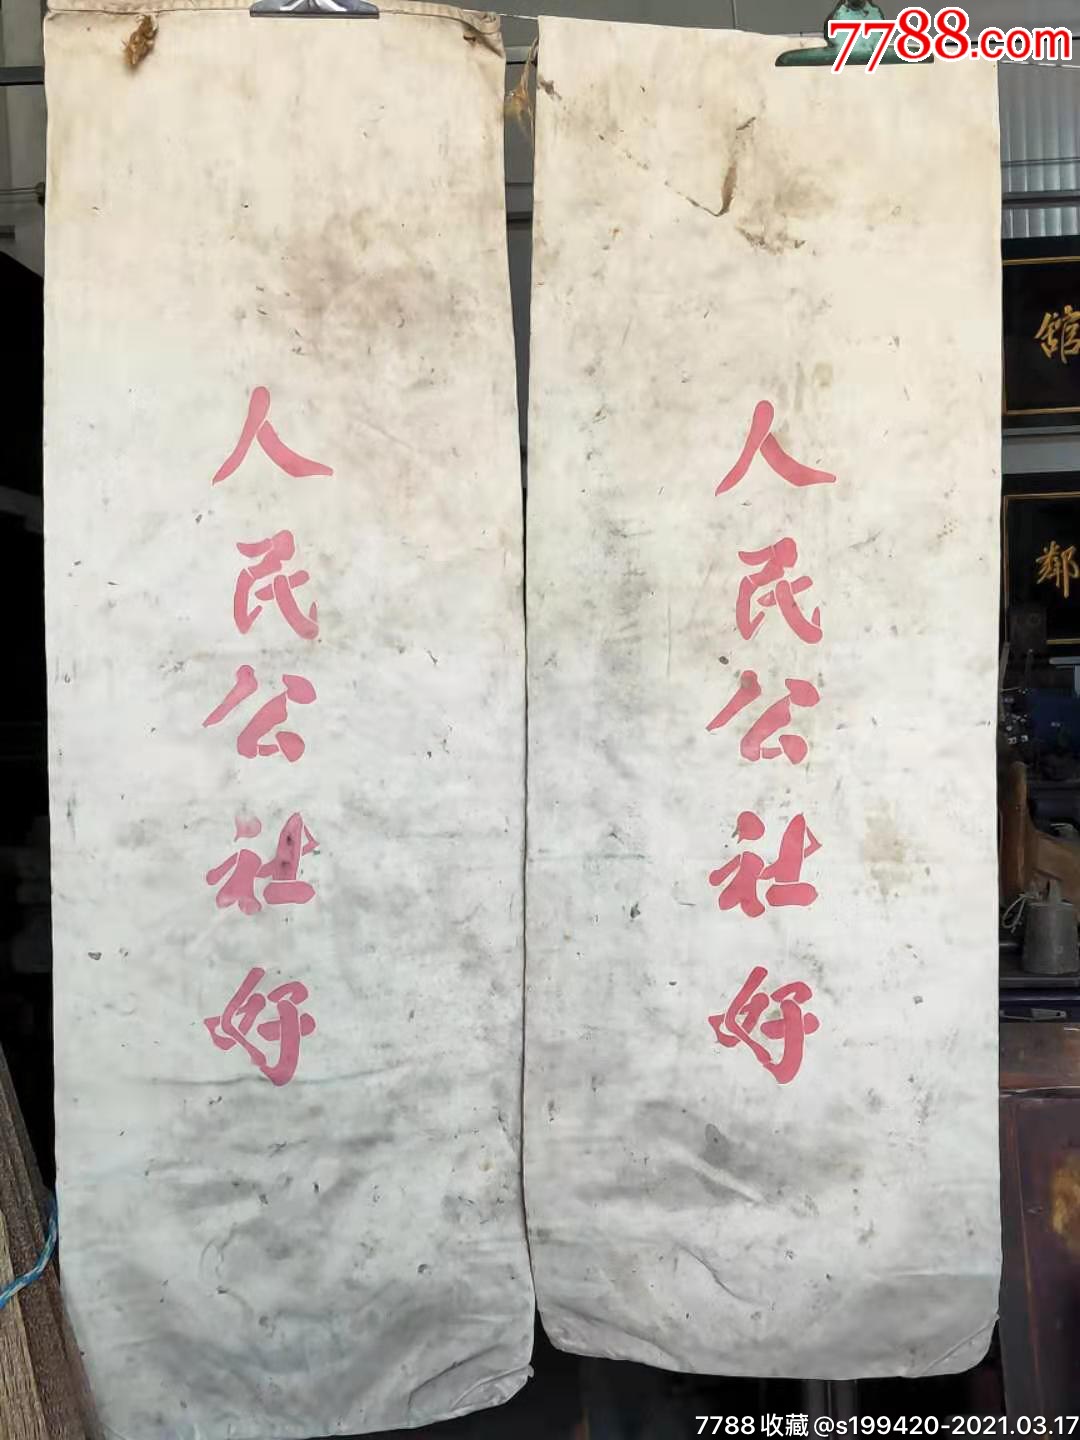 7788.com
人民公社好
人民公社好
舘
鄰
7788收藏@s199420-2021.03.17